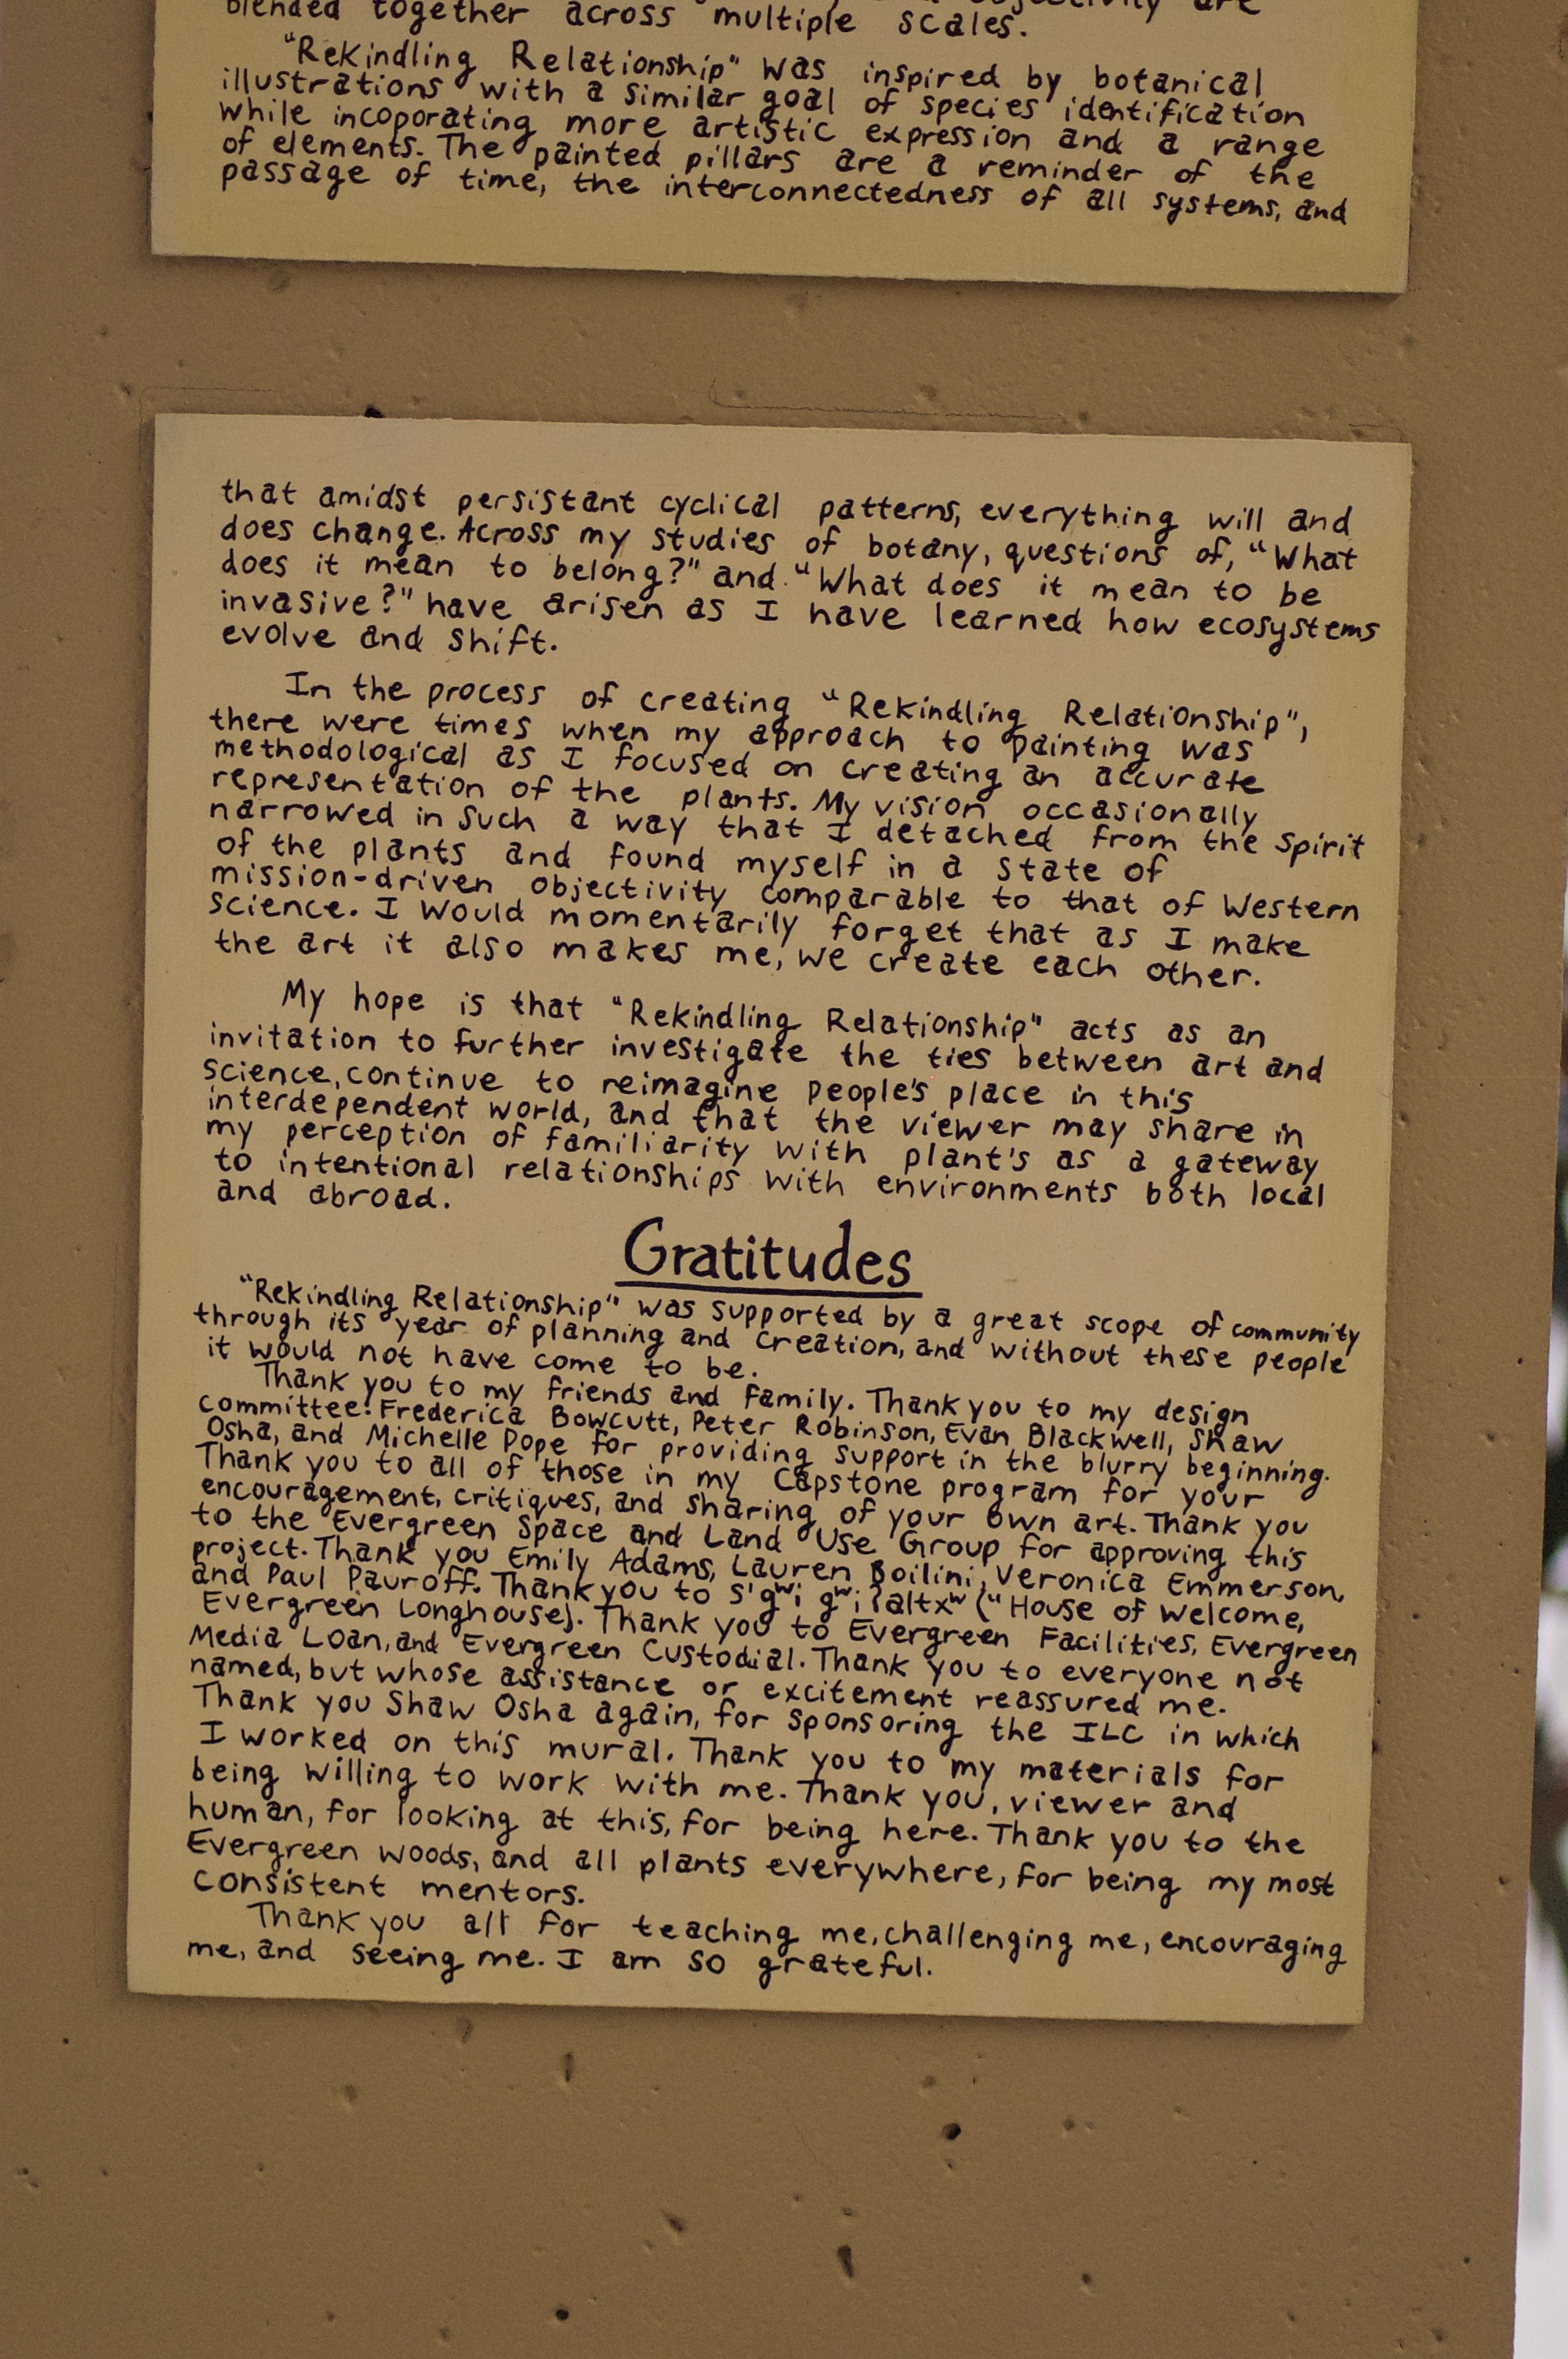 blended together across multiple scales.
"Rekindling Relationship" was inspired by botanical
illustrations with a similar goal of species identification
while incoporating more artistic expression and a range
of elements. The painted pillars are a reminder of the
passage of time, the interconnectedness of all systems, and
that amidst persistant cyclical patterns, everything will and
does change. Across my studies of botany, questions of, "What
does it mean to belong?" and "What does it mean to be
invasive?" have arisen as I have learned how ecosystems
evolve and shift.
In the process of creating "Rekindling Relationship",
there were times when my approach to painting was
methodological as I focused on creating an accurate
representation of the plants. My vision occasionally
narrowed in such a way that I detached from the spirit
of the plants and found myself in a state of
mission-driven objectivity comparable to that of Western
science. I would momentarily forget that as I make
the art it also makes me, we create each other.
My hope is that "Rekindling Relationship" acts as an
invitation to further investigate the ties between art and
science, continue to reimagine people's place in this
interdependent world, and that the viewer may share in
my perception of familiarity with plant's as a gateway
to intentional relationships with environments both local
and abroad.
Gratitudes
"Rekindling Relationship" was supported by a great scope of community
through its year of planning and creation, and without these people
it would not have come to be.
Thank you to my friends and family. Thank you to my design
committee: Frederica Bowcutt, Peter Robinson, Evan Blackwell, Shaw
Osha, and Michelle Pope for providing support in the blurry beginning.
Thank you to all of those in my Capstone program for your
encouragement, critiques, and sharing of your own art. Thank you
to the Evergreen Space and Land Use Group for approving this
project. Thank you Emily Adams, Lauren Boilini, Veronica Emmerson,
and Paul Pauroff. Thank you to s'gʷi gʷiʔaltxʷ ("House of Welcome,
Evergreen Longhouse). Thank you to Evergreen Facilities, Evergreen
Media Loan, and Evergreen Custodial. Thank you to everyone not
named, but whose assistance or excitement reassured me.
Thank you Shaw Osha again, for sponsoring the ILC in which
I worked on this mural. Thank you to my materials for
being willing to work with me. Thank you, viewer and
human, for looking at this, for being here. Thank you to the
Evergreen woods, and all plants everywhere, for being my most
consistent mentors.
Thank you all for teaching me, challenging me, encouraging
me, and seeing me. I am so grateful.